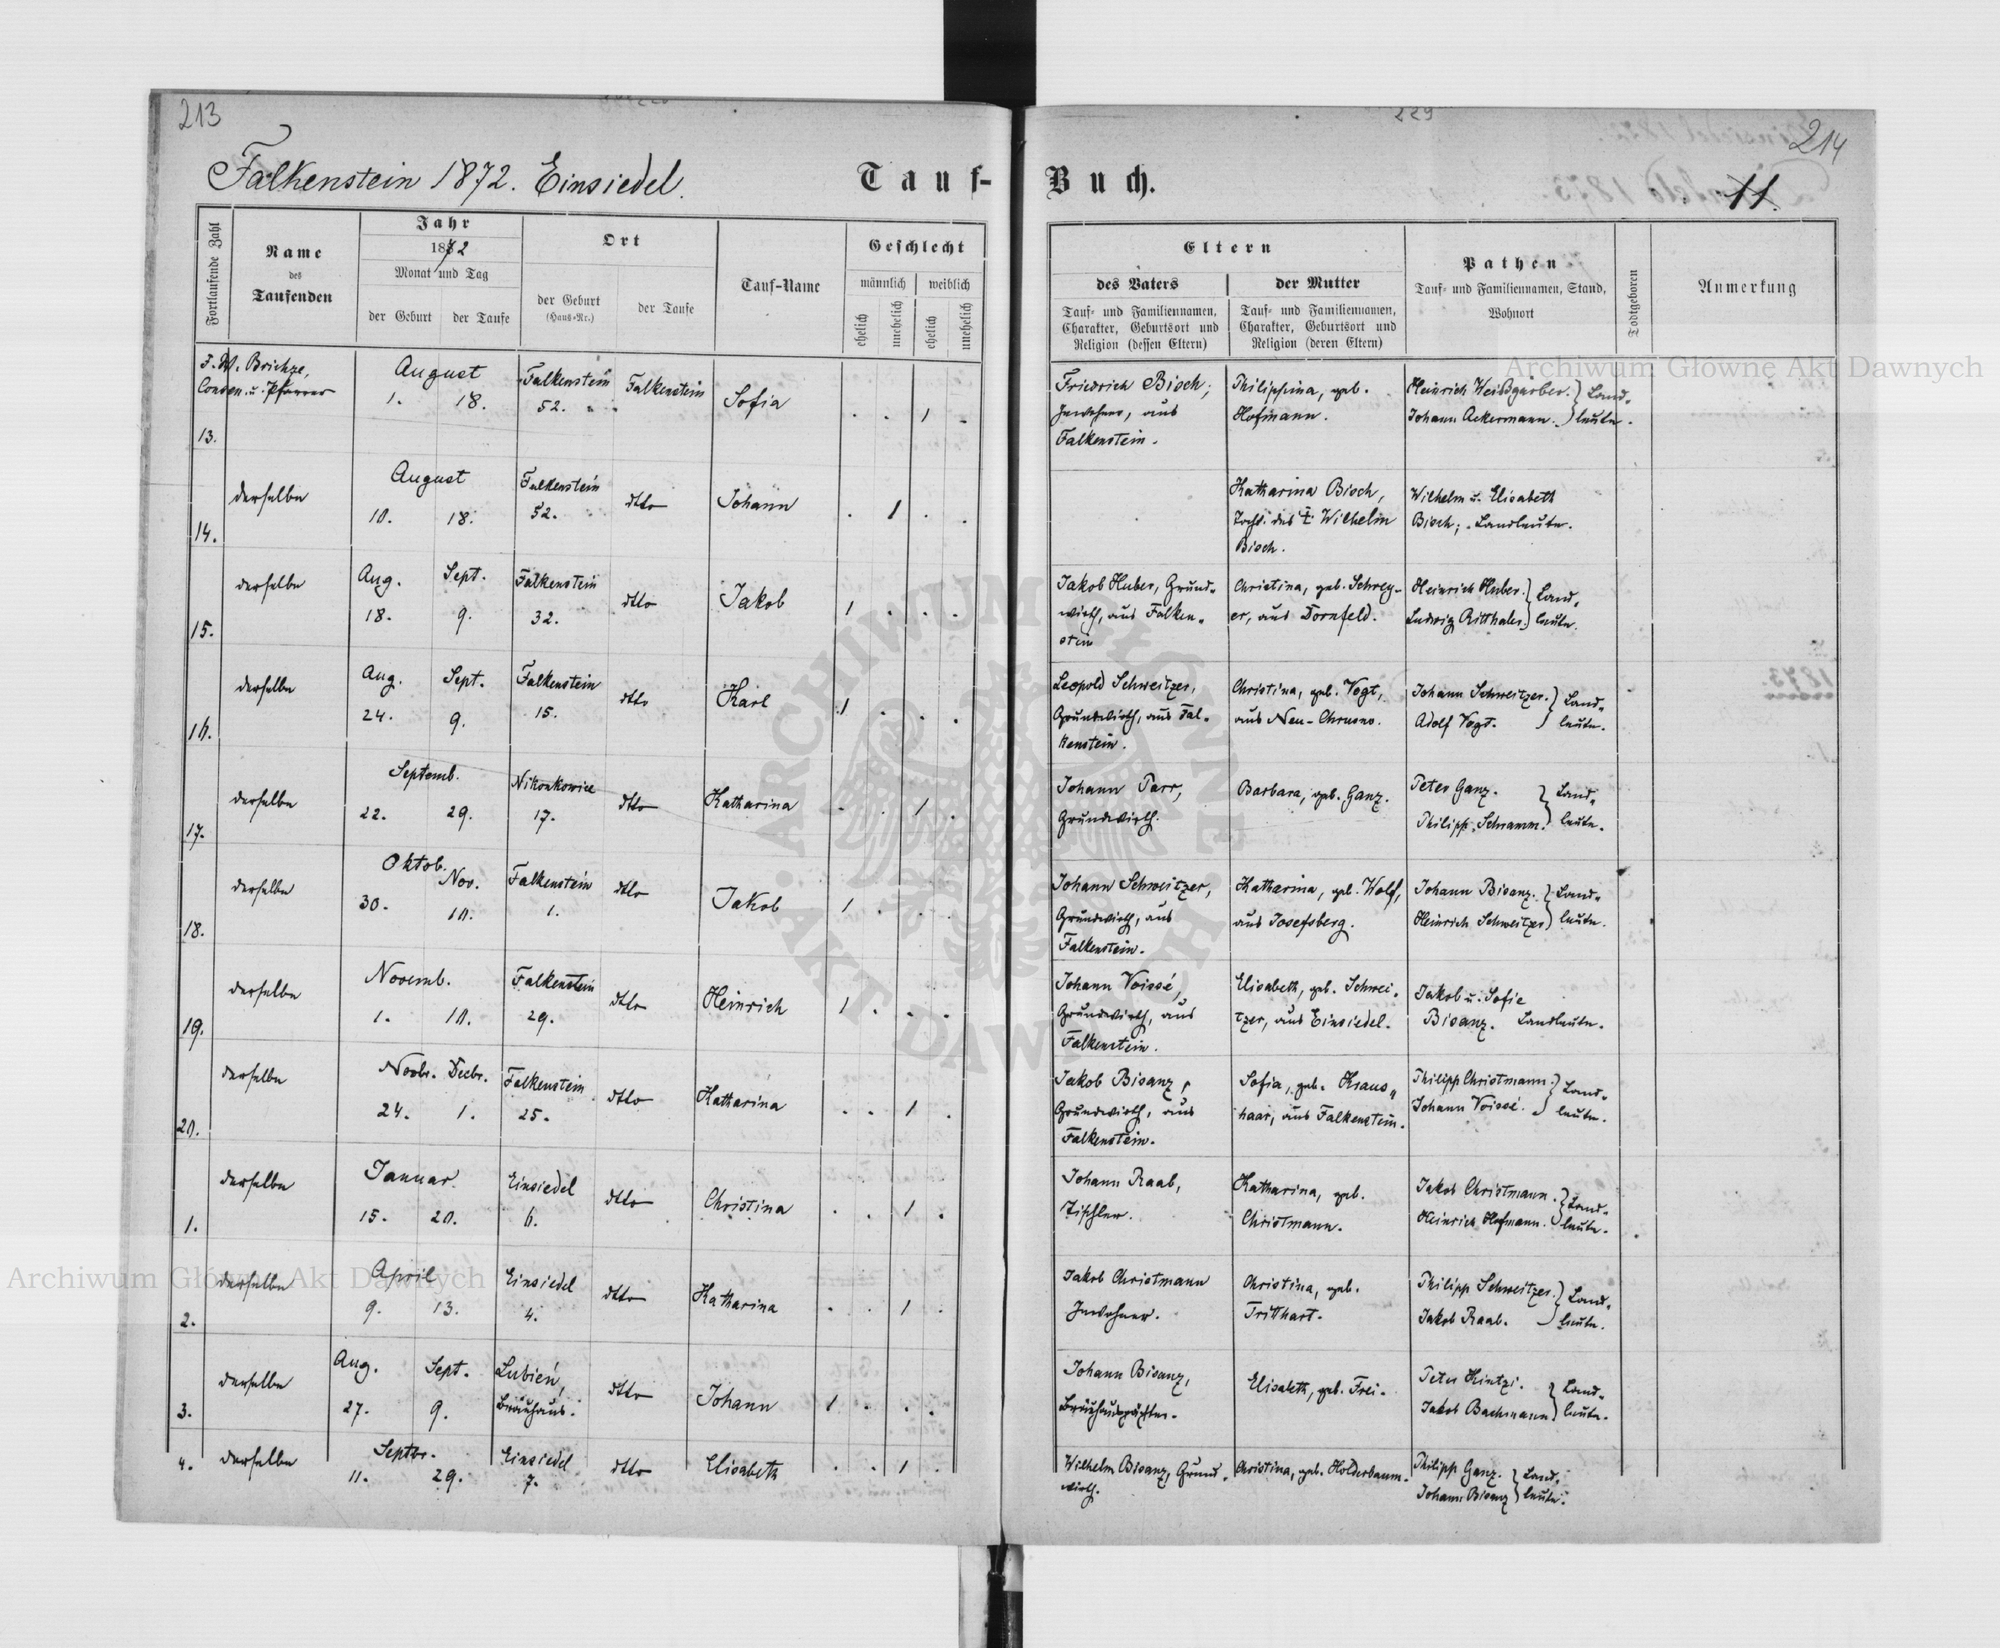 213
214
229
Falkenstein 1872. Einsiedel.
Tauf-Buch.
11.
Fortlaufende Zahl
Name
des
Taufenden
Jahr
1872
Monat und Tag
der Geburt
der Taufe
Ort
der Geburt
(Haus-Nr.)
der Taufe
Tauf-Name
Geschlecht
männlich
weiblich
ehelich
unehelich
ehelich
unehelich
Eltern
des Vaters
Tauf- und Familiennamen,
Charakter, Geburtsort und
Religion (dessen Eltern)
der Mutter
Tauf- und Familiennamen,
Charakter, Geburtsort und
Religion (deren Eltern)
Pathen
Tauf- und Familiennamen, Stand,
Wohnort
Todtgeboren
Anmerkung
J. W. Brichze,
Consen. u. Pfarrer
13.
August
1. 18.
Falkenstein
52.
Falkenstein
Sofia
. . 1 .
Friedrich Bisch,
Inwohner, aus
Falkenstein.
Philippina, geb.
Hofmann.
Heinrich Weißgärber.
Johann Ackermann.
} Land-
leute.
14.
derselbe
August
10. 18.
Falkenstein
52.
dtto
Johann
. 1 . .
Katharina Bisch,
Tocht. des † Wilhelm
Bisch.
Wilhelm u. Elisabeth
Bisch; Landleute.
15.
derselbe
Aug. Sept.
18. 9.
Falkenstein
32.
dtto
Jakob
1 . . .
Jakob Huber, Grund-
wirth, aus Falken-
stein
Christina, geb. Schrey-
er, aus Dornfeld.
Heinrich Huber.
Ludwig Ritthaler.
} Land-
leute.
16.
derselbe
Aug. Sept.
24. 9.
Falkenstein
15.
dtto
Karl
1 . . .
Leopold Schweitzer,
Grundwirth, aus Fal-
kenstein.
Christina, geb. Vogt,
aus Neu-Chrusno.
Johann Schweitzer.
Adolf Vogt.
} Land-
leute.
17.
derselbe
Septemb.
22. 29.
Nikonkowice
17.
dtto
Katharina
. . 1 .
Johann Parr,
Grundwirth.
Barbara, geb. Ganz.
Peter Ganz.
Philipp Schramm.
} Land-
leute.
18.
derselbe
Oktob. Nov.
30. 10.
Falkenstein
1.
dtto
Jakob
1 . . .
Johann Schweitzer,
Grundwirth, aus
Falkenstein.
Katharina, geb. Wolf,
aus Josefsberg.
Johann Bisanz.
Heinrich Schweitzer
} Land-
leute.
19.
derselbe
Novemb.
1. 10.
Falkenstein
29.
dtto
Heinrich
1 . . .
Johann Voissé,
Grundwirth, aus
Falkenstein.
Elisabeth, geb. Schwei-
tzer, aus Einsiedel.
Jakob u. Sofie
Bisanz. Landleute.
20.
derselbe
Novbr. Decbr.
24. 1.
Falkenstein
25.
dtto
Katharina
. . 1 .
Jakob Bisanz,
Grundwirth, aus
Falkenstein.
Sofia, geb. Kraus-
haar, aus Falkenstein.
Philipp Christmann.
Johann Voissé.
} Land-
leute.
1.
derselbe
Januar
15. 20.
Einsiedel
6.
dtto
Christina
. . 1 .
Johann Raab,
Tischler.
Katharina, geb.
Christmann.
Jakob Christmann.
Heinrich Hofmann.
} Land-
leute.
2.
derselbe
April
9. 13.
Einsiedel
4.
dtto
Katharina
. . 1 .
Jakob Christmann
Inwohner.
Christina, geb.
Tritthart.
Philipp Schweitzer.
Jakob Raab.
} Land-
leute.
3.
derselbe
Aug. Sept.
27. 9.
Lubień,
Bräuhaus.
dtto
Johann
1 . . .
Johann Bisanz,
Bräuhauspächter.
Elisabeth, geb. Frei.
Peter Kintzi.
Jakob Bachmann
} Land-
leute.
4.
derselbe
Septbr.
11. 29.
Einsiedel
7.
dtto
Elisabeth
. . 1 .
Wilhelm Bisanz, Grund-
wirth.
Christina, geb. Holderbaum.
Philipp Ganz.
Johann Bisanz
} Land-
leute.
Archiwum Główne Akt Dawnych
Archiwum Główne Akt Dawnych
ARCHIWUM GŁÓWNE AKT DAWNYCH